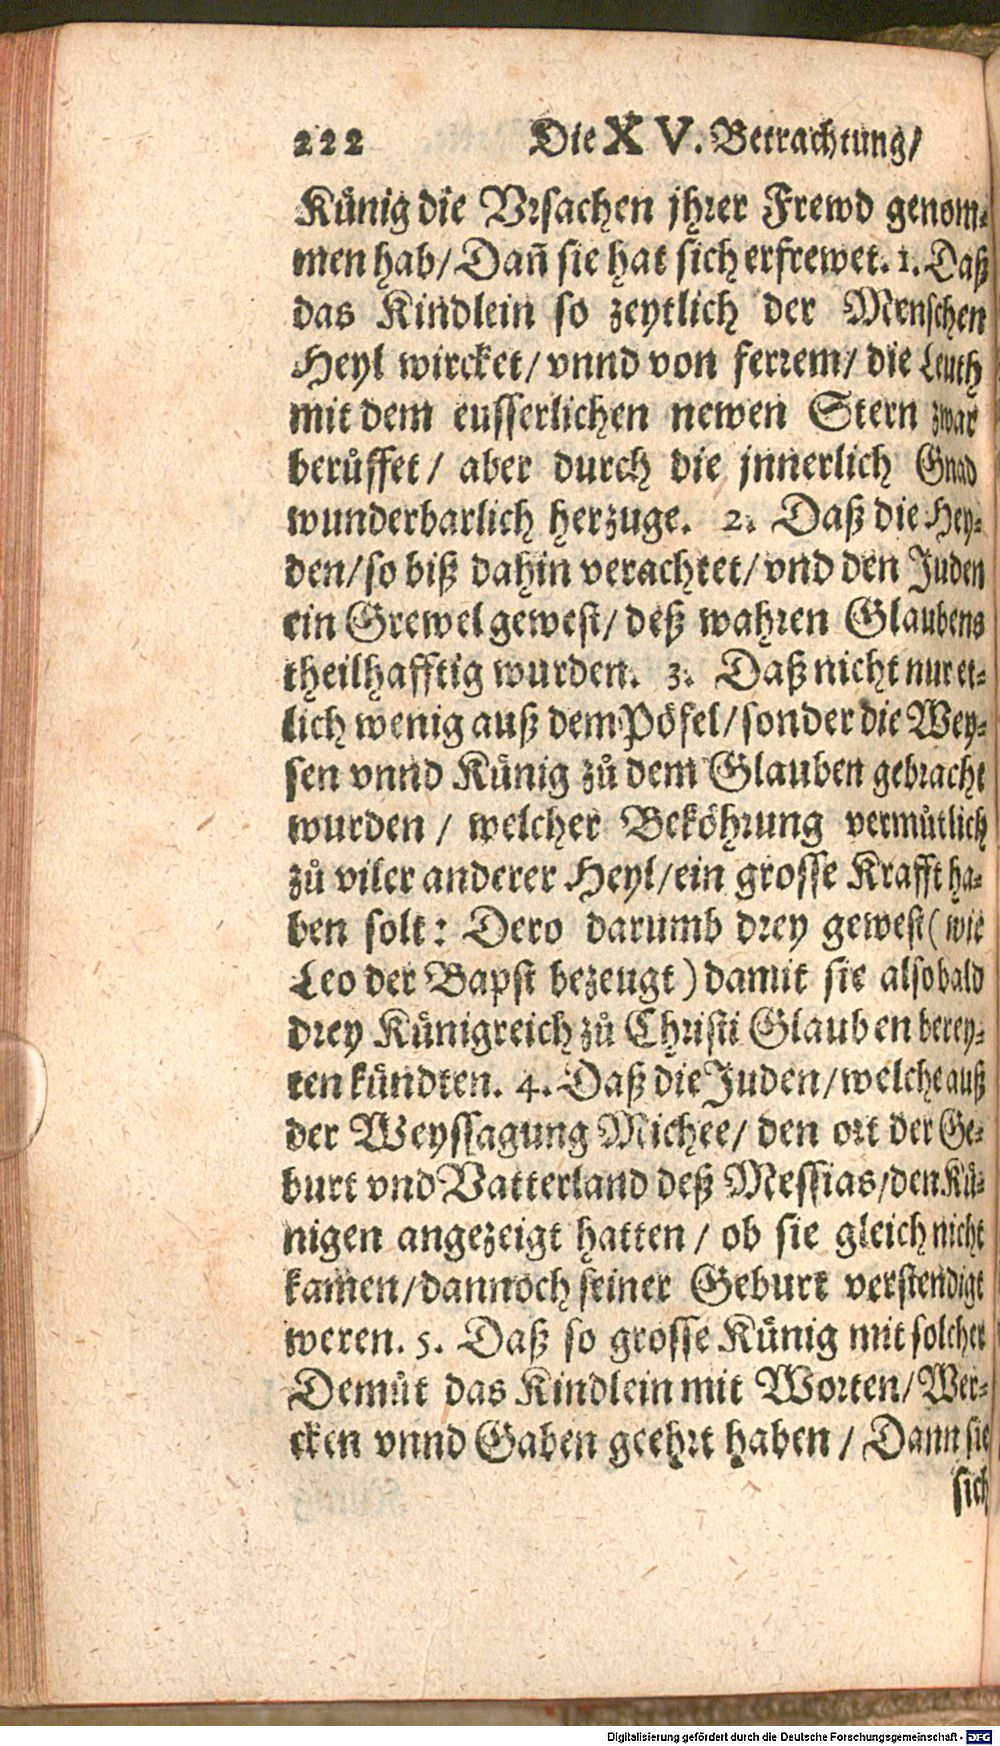 222 Die XV. Betrachtung/
Kuͤnig die Vrsachen jhrer Frewd genom-
men hab/ Dañ sie hat sich erfrewet. 1. Daß
das Kindlein so zeytlich der Menschen
Heyl wircket/ vnnd von ferrem/ die Leuth
mit dem eusserlichen newen Stern zwar
beruͤffet/ aber durch die jnnerlich Gnad
wunderbarlich herzuge. 2. Daß die Hey-
den/ so biß dahin verachtet/ vnd den Juden
ein Grewel gewest/ deß wahren Glaubens
theilhafftig wurden. 3. Daß nicht nur et-
lich wenig auß dem Poͤfel/ sonder die Wey-
sen vnnd Kuͤnig zů dem Glauben gebracht
wurden/ welcher Bekoͤhrung vermůtlich
zů viler anderer Heyl/ ein grosse Krafft ha-
ben solt: Dero darumb drey gewest (wie
Leo der Bapst bezeugt) damit sie alsobald
drey Kuͤnigreich zů Christi Glauben berey-
ten kuͤndten. 4. Daß die Juden/ welche auß
der Weyssagung Michee/ den ort der Ge-
burt vnd Vatterland deß Messias/ den Kuͤ-
nigen angezeigt hatten/ ob sie gleich nicht
kamen/ dannoch seiner Geburt verstendigt
weren. 5. Daß so grosse Kuͤnig mit solcher
Demůt das Kindlein mit Worten/ Wer-
cken vnnd Gaben geehrt haben/ Dann sie
sich
Digitalisierung gefördert durch die Deutsche Forschungsgemeinschaft - DFG